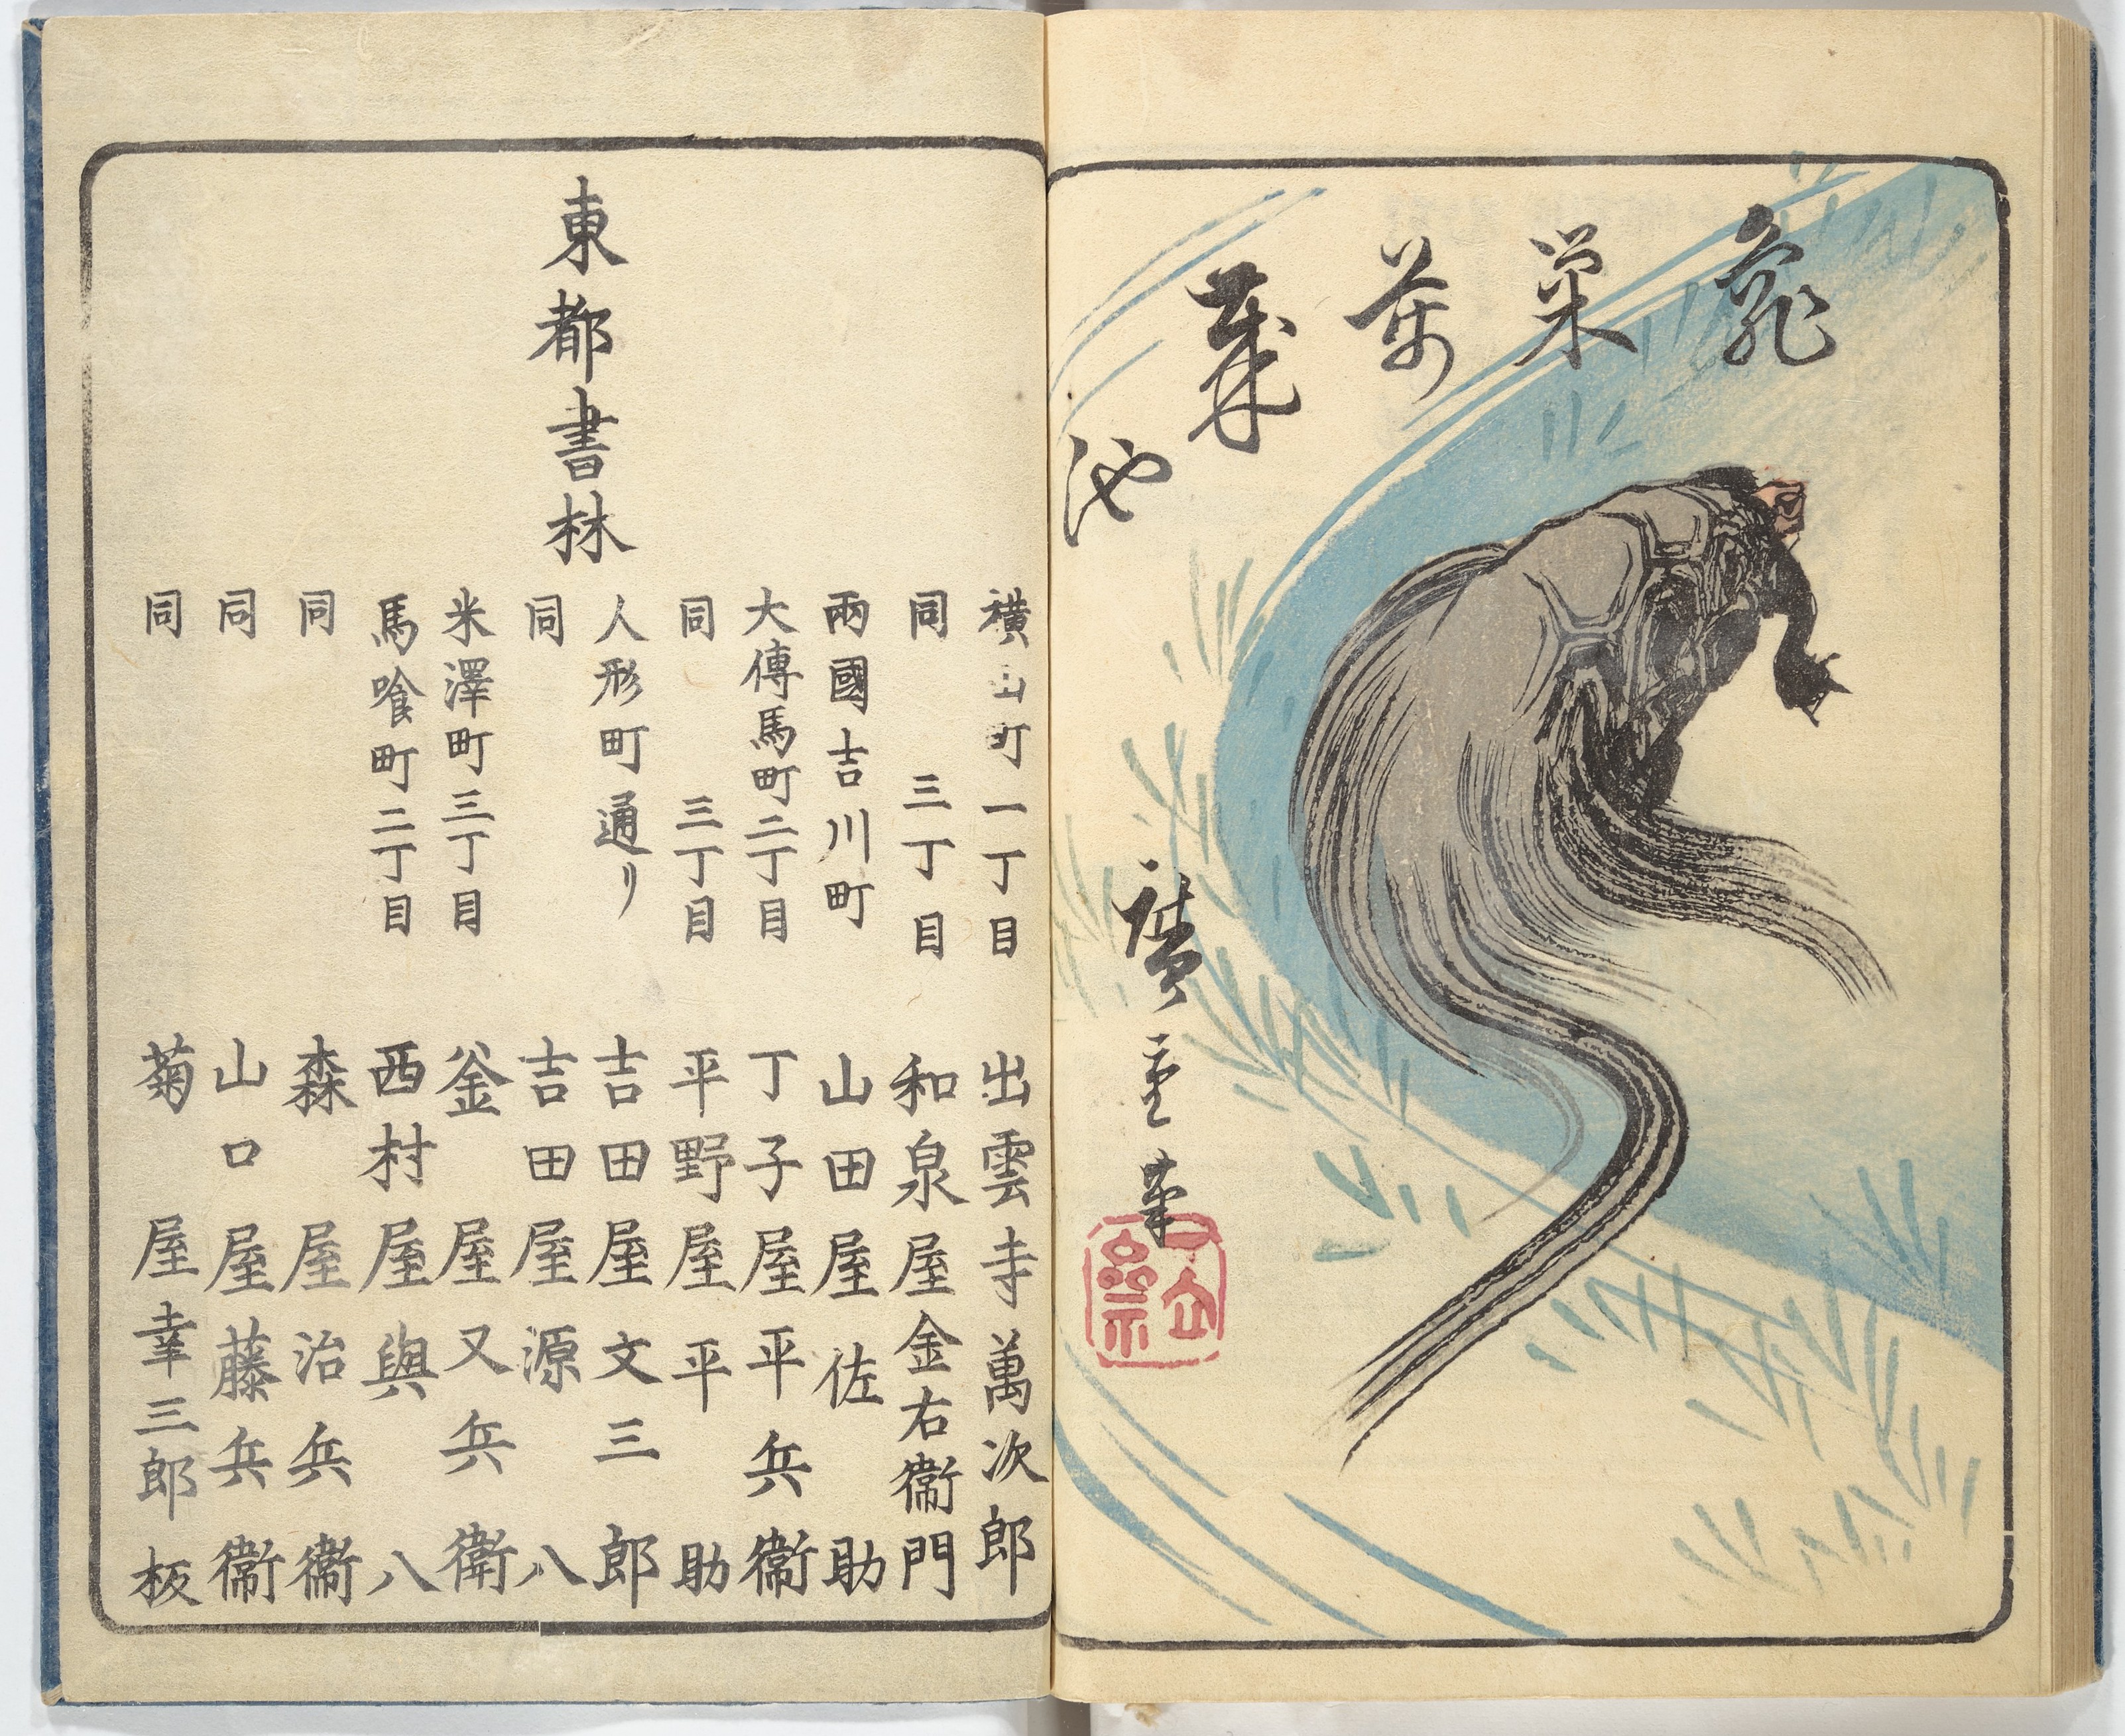 萬
歳
池
廣重筆
東都書林
横山町一丁目 出雲寺萬次郎
同 三丁目 和泉屋金右衞門
兩國吉川町 山田屋佐助
大傳馬町二丁目 丁子屋平兵衞
同 三丁目 平野屋平助
人形町通リ 吉田屋文三郎
同 吉田屋源八
米澤町三丁目 釜屋又兵衛
馬喰町二丁目 西村屋與八
同 森屋治兵衞
同 山口屋藤兵衞
同 菊屋幸三郎板